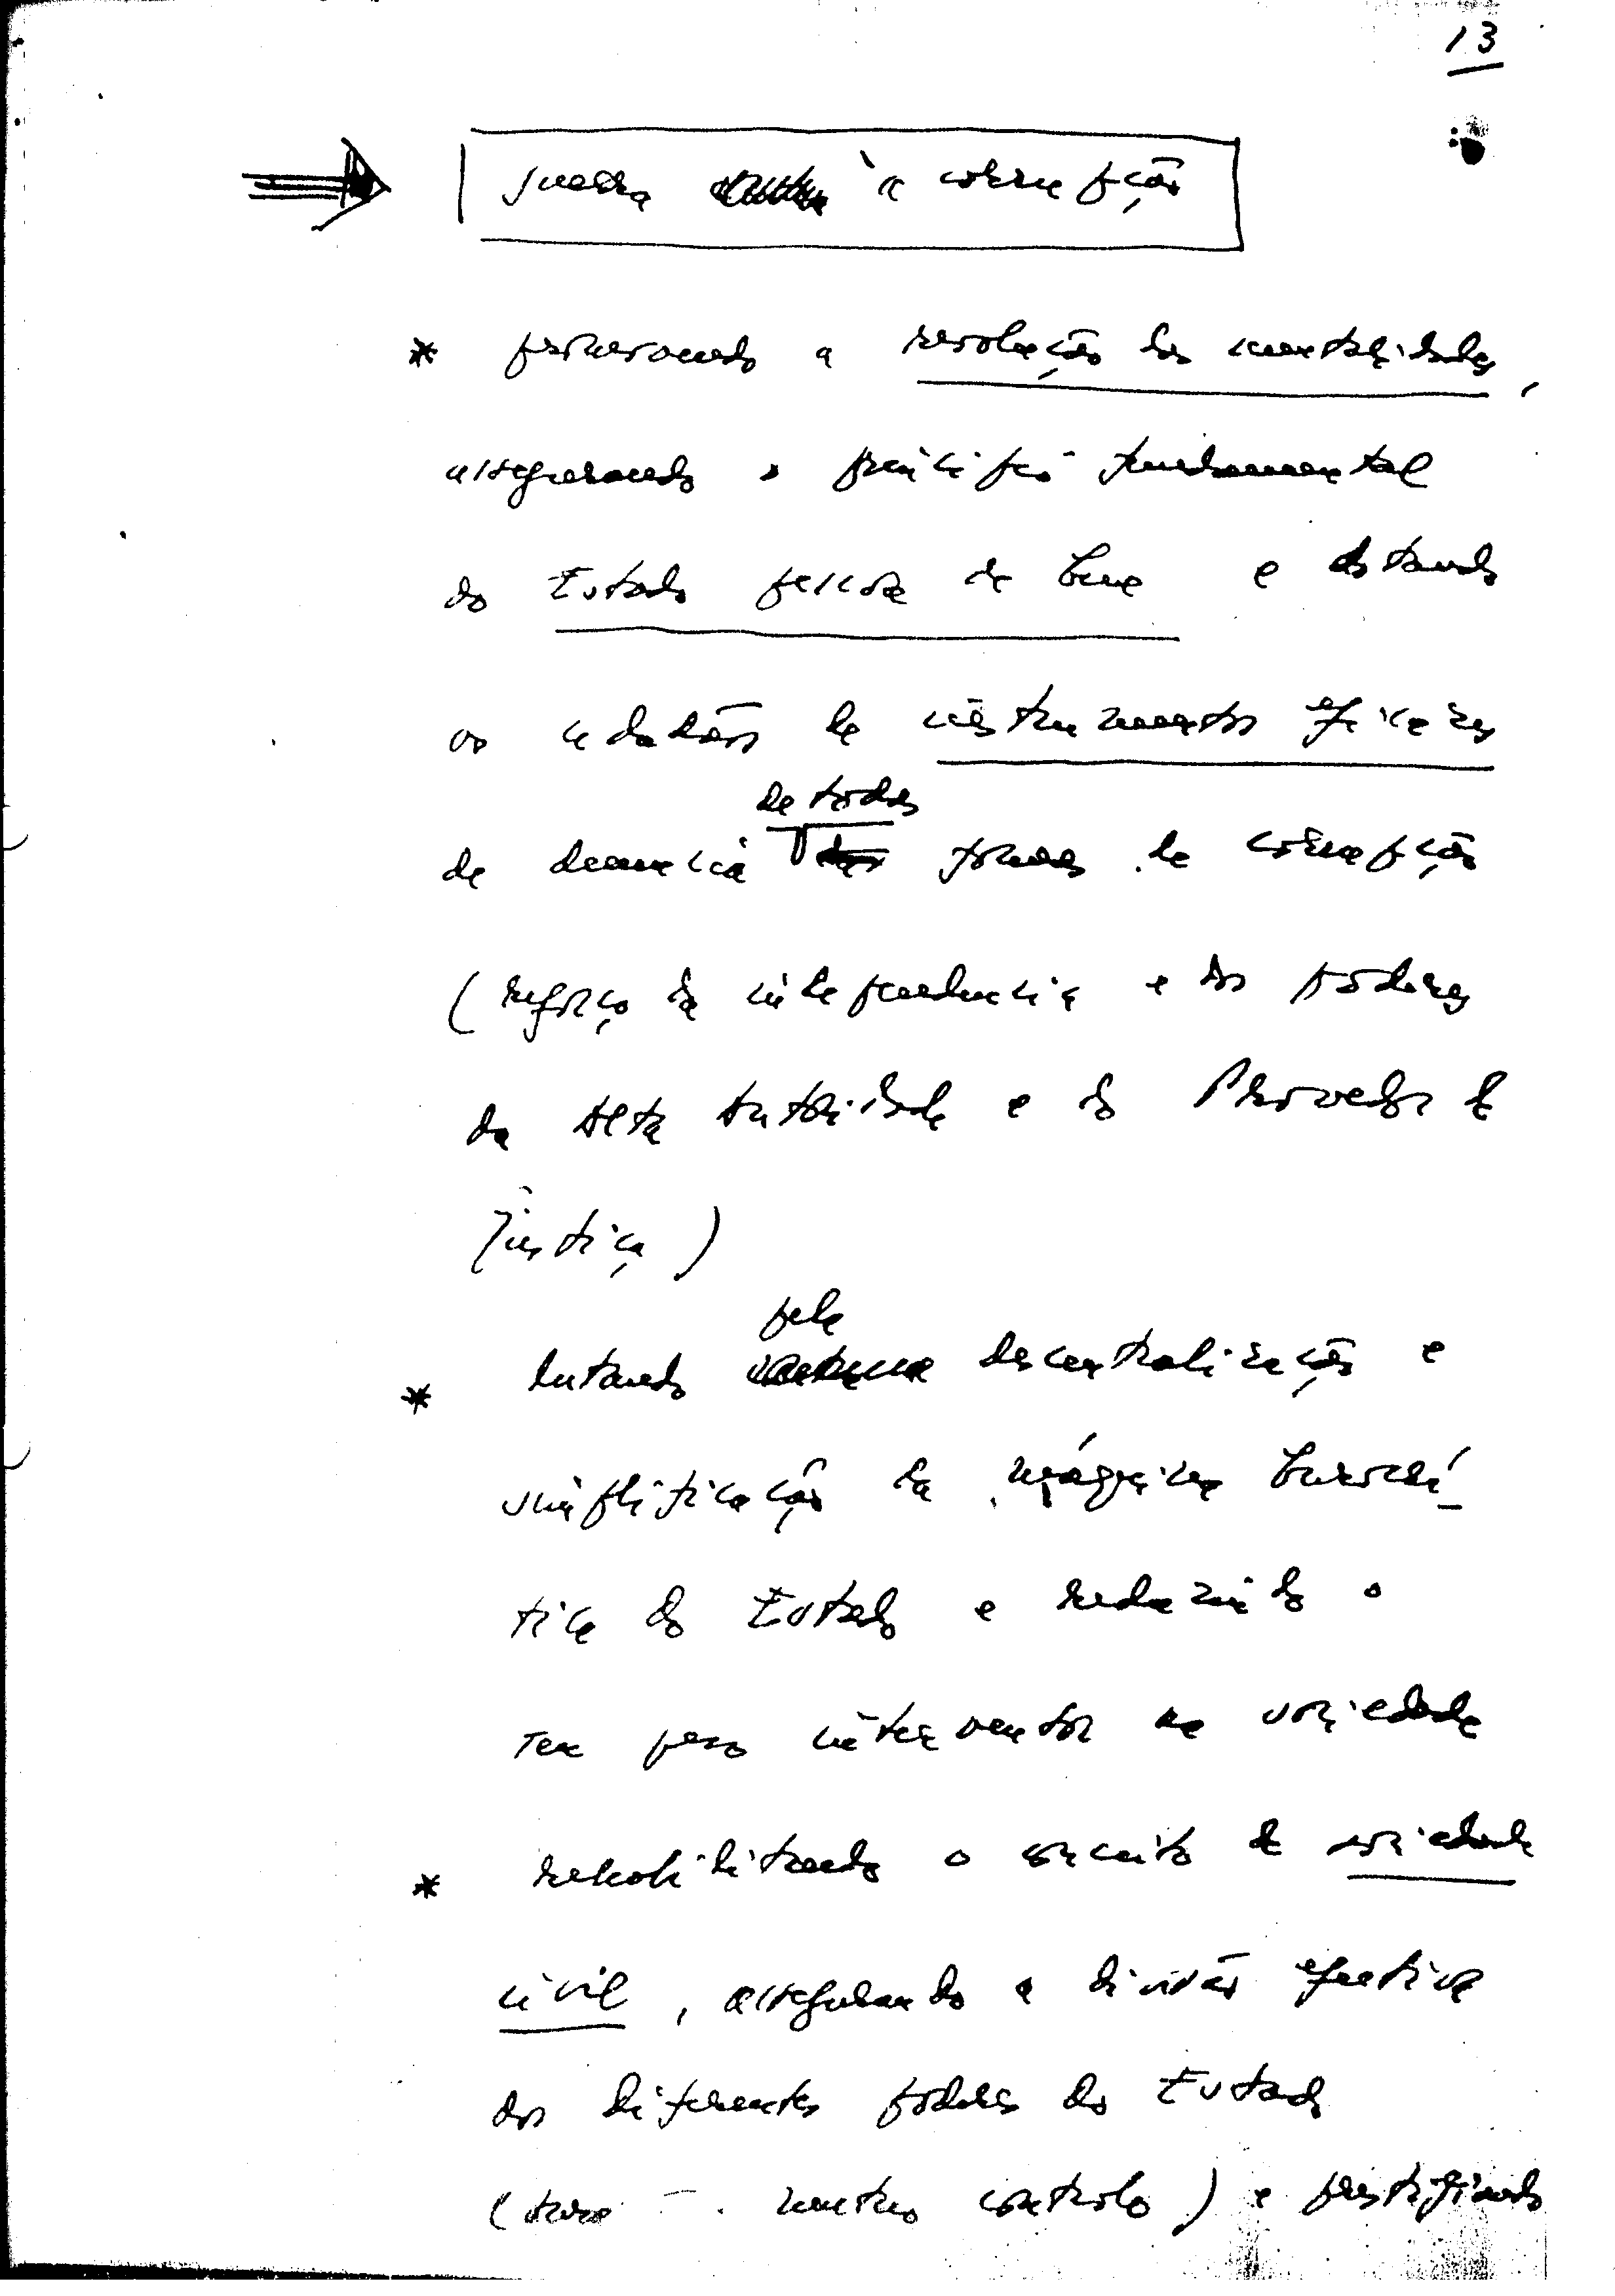 13
guerra à corrupção
* promovendo a revolução das mentalidades,
assegurando o princípio fundamental
do Estado pessoa de bem e dotando
os cidadãos de instrumentos eficazes
de todas
de denúncia formas de corrupção
(reforço da independência e dos poderes
da Alta Autoridade e do Provedor de
Justiça)
pela
* lutando descentralização e
simplificação da máquina burocrá-
tica do Estado e reduzindo o
seu peso interventor na sociedade
* rehabilitando o conceito de sociedade
civil, assegurando a divisão efectiva
dos diferentes poderes do Estado
( mútuo controlo) e prestigiando